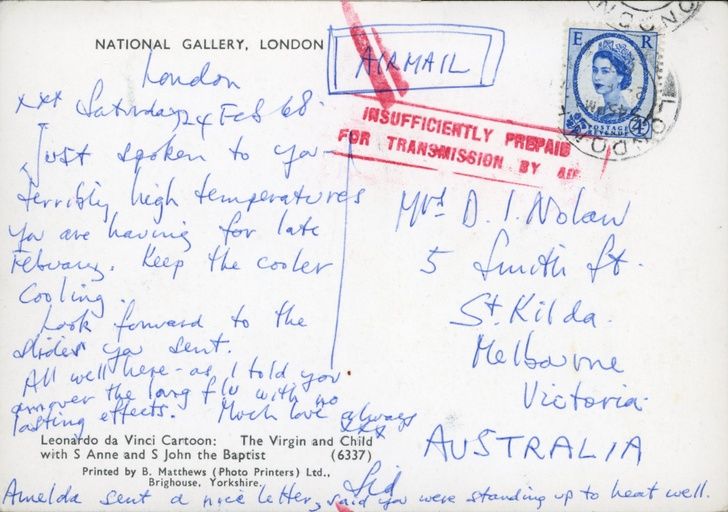 NATIONAL GALLERY, LONDON
AIRMAIL
E R
POSTAGE
4D
LONDON
INSUFFICIENTLY PREPAID
FOR TRANSMISSION BY AIR
London
xxx Saturday 24 Feb 68.
Just spoken to you -
terribly high temperatures
you are having for late
February. Keep the cooler
cooling.
Look forward to the
slides you sent.
All well here - as I told you
am over the long flu with no
lasting effects. Much love always
xxx
Sid
Amelda sent a nice letter, said you were standing up to heat well.
Mrs D. I. Nolan
5 Smith St.
St. Kilda.
Melbourne
Victoria.
AUSTRALIA
Leonardo da Vinci Cartoon: The Virgin and Child
with S Anne and S John the Baptist (6337)
Printed by B. Matthews (Photo Printers) Ltd.,
Brighouse, Yorkshire.